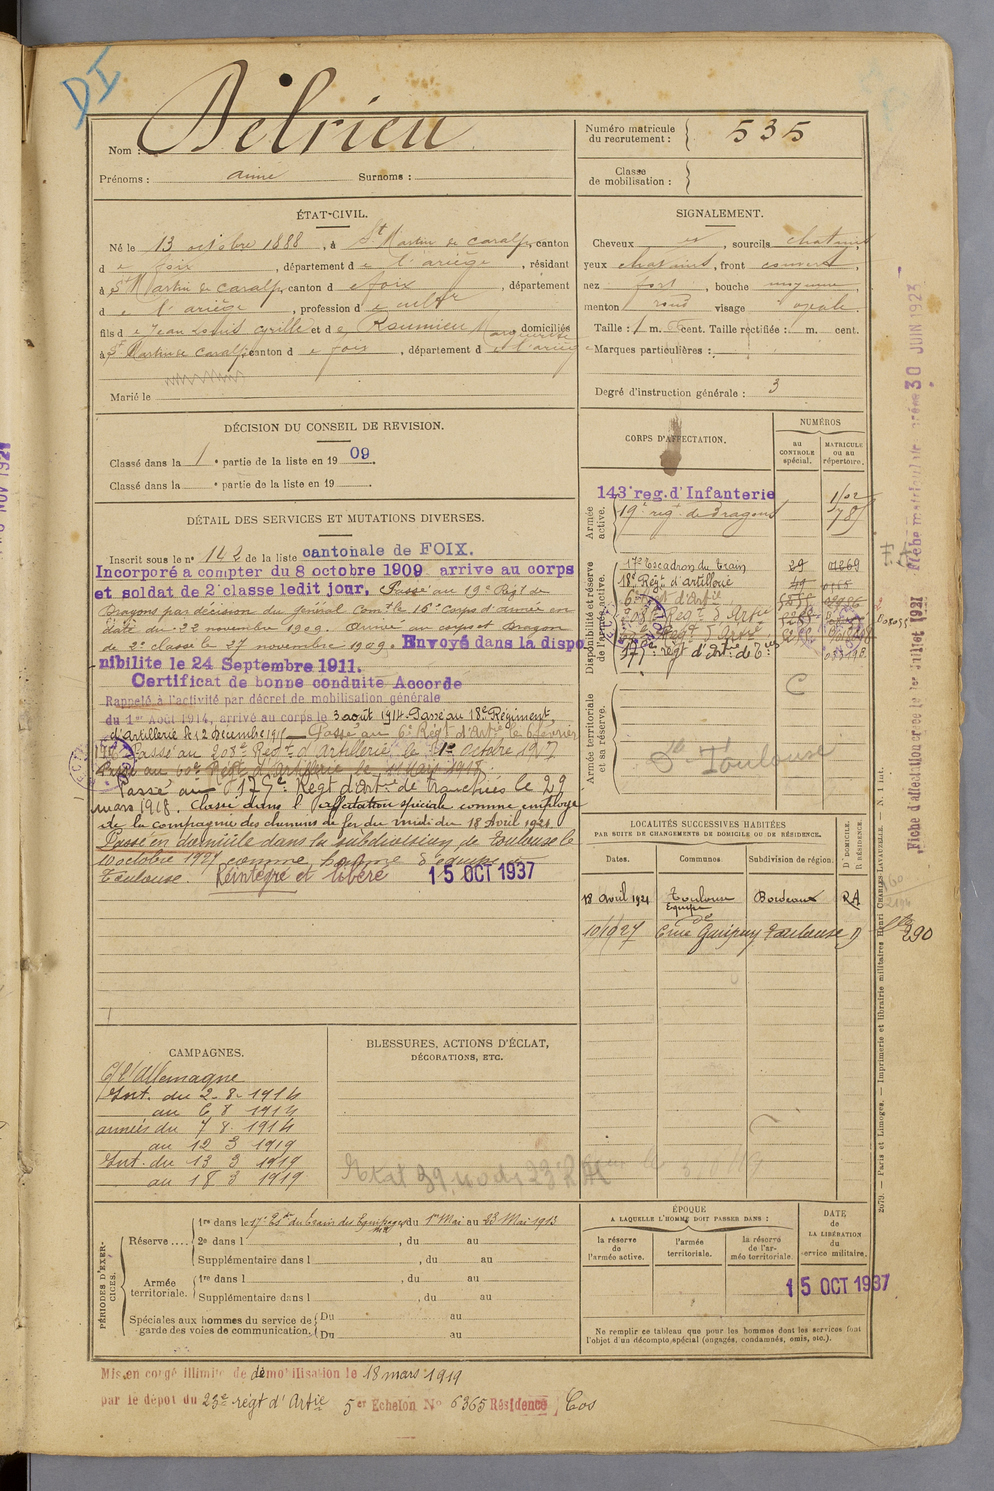 DI
Nom : Delrieu
Prénoms : aimé Surnoms :
Numéro matricule du recrutement : 535
Classe de mobilisation :
ÉTAT-CIVIL.
Né le 13 octobre 1888, à St Martin de Caralp, canton
d e foix, département d e l'ariège, résidant
à St Martin de Caralp, canton d e foix, département
d e l'ariège, profession d e cultr
fils d e Jean Louis Cyrille et d e Roumieu Marguerite domiciliés
à St Martin de Caralp canton d e foix, département d e l'ariège
Marié le
SIGNALEMENT.
Cheveux et, sourcils chatains
yeux chatains, front couvert,
nez fort, bouche moyenne,
menton rond visage ovale.
Taille : 1 m. cent. Taille rectifiée : m. cent.
Marques particulières :
Degré d'instruction générale : 3
DÉCISION DU CONSEIL DE REVISION.
Classé dans la 1e partie de la liste en 1909.
Classé dans la e partie de la liste en 19
DÉTAIL DES SERVICES ET MUTATIONS DIVERSES.
Inscrit sous le no 142 de la liste cantonale de FOIX.
Incorporé a compter du 8 octobre 1909 arrive au corps
et soldat de 2e classe ledit jour, Passé au 19e Régt de
Dragons par décision du général Comt le 16e Corps d'armée en
date du 22 novembre 1909. Arrivé au corps et dragon
de 2e classe le 27 novembre 1909. Envoyé dans la dispo
nibilite le 24 Septembre 1911.
Certificat de bonne conduite Accorde
Rappelé à l'activité par décret de mobilisation générale
du 1er Août 1914, arrivé au corps le 3 août 1914. Passé au 18e Régiment
d'artillerie le 12 decembre 1915 - Passé au 6e Régt d'Artie le 6 février
Passé au 208e Régt d'artillerie le 1er Octobre 1917
Passé au 60e Régt d'Artillerie le 11 Mars 1918.
Passé au 177e Régt d'Artie de tranchées le 29
mars 1918. Classé dans l'affectation spéciale comme employé
de la compagnie des chemins de fer du midi du 18 Avril 1921.
Passé en domicile dans la subdivision de Toulouse le
10 octobre 1927 comme homme d'équipe
Toulouse. Réintégré et libéré 15 OCT 1937
CORPS D'AFFECTATION.
NUMÉROS
au CONTROLE spécial.
MATRICULE ou au répertoire.
Armée active.
143e reg. d'Infanterie
19e regt de dragons 78
Disponibilité et réserve de l'armée active.
17e Escadron du train 29 01269
18e Régt d'artillerie
6e Regt d'Artie
208e Regt d'Artie
60e Regt d'Artie
177e régt d'Artie de Tees
Armée territoriale et sa réserve.
C
Sn Toulouse
LOCALITÉS SUCCESSIVES HABITÉES
PAR SUITE DE CHANGEMENTS DE DOMICILE OU DE RÉSIDENCE.
Dates. Communes. Subdivision de région. D DOMICILE. R RÉSIDENCE.
18 avril 1921 Toulouse Equipe Bordeaux RA
10/10/27 Toulouse D
290
CAMPAGNES.
C/ l'Allemagne
Int. du 2-8-1914
au 6 8 1914
armées du 7 8 1914
au 12 3 1919
Int. du 13 3 1919
au 18 3 1919
BLESSURES, ACTIONS D'ÉCLAT, DÉCORATIONS, ETC.
PÉRIODES D'EXERCICES.
Réserve .... 1re dans le 17e Esdr du train des Equipages du 1er Mai au 23 Mai 1913
2e dans l , du au
Supplémentaire dans l , du au
Armée territoriale. 1re dans l , du au
Supplémentaire dans l , du au
Spéciales aux hommes du service de garde des voies de communication. Du au
Du au
ÉPOQUE
A LAQUELLE L'HOMME DOIT PASSER DANS :
la réserve de l'armée active.
l'armée territoriale.
la réserve de l'armée territoriale.
DATE de LA LIBÉRATION du service militaire.
15 OCT 1937
Ne remplir ce tableau que pour les hommes dont les services font l'objet d'un décompte spécial (engagés, condamnés, omis, etc.).
Mis en congé illimité de démobilisation le 18 mars 1919
par le dépot du 23e régt d'Artie 5er Echelon No 6365 Résidence Cos
2679. — Paris et Limoges. — Imprimerie et librairie militaires Henri CHARLES-LAVAUZELLE. — N. 1 int.
Fiche matriculaire créée 30 JUIN 1923
Fiche d'affectation créée le 1er Juillet 1921